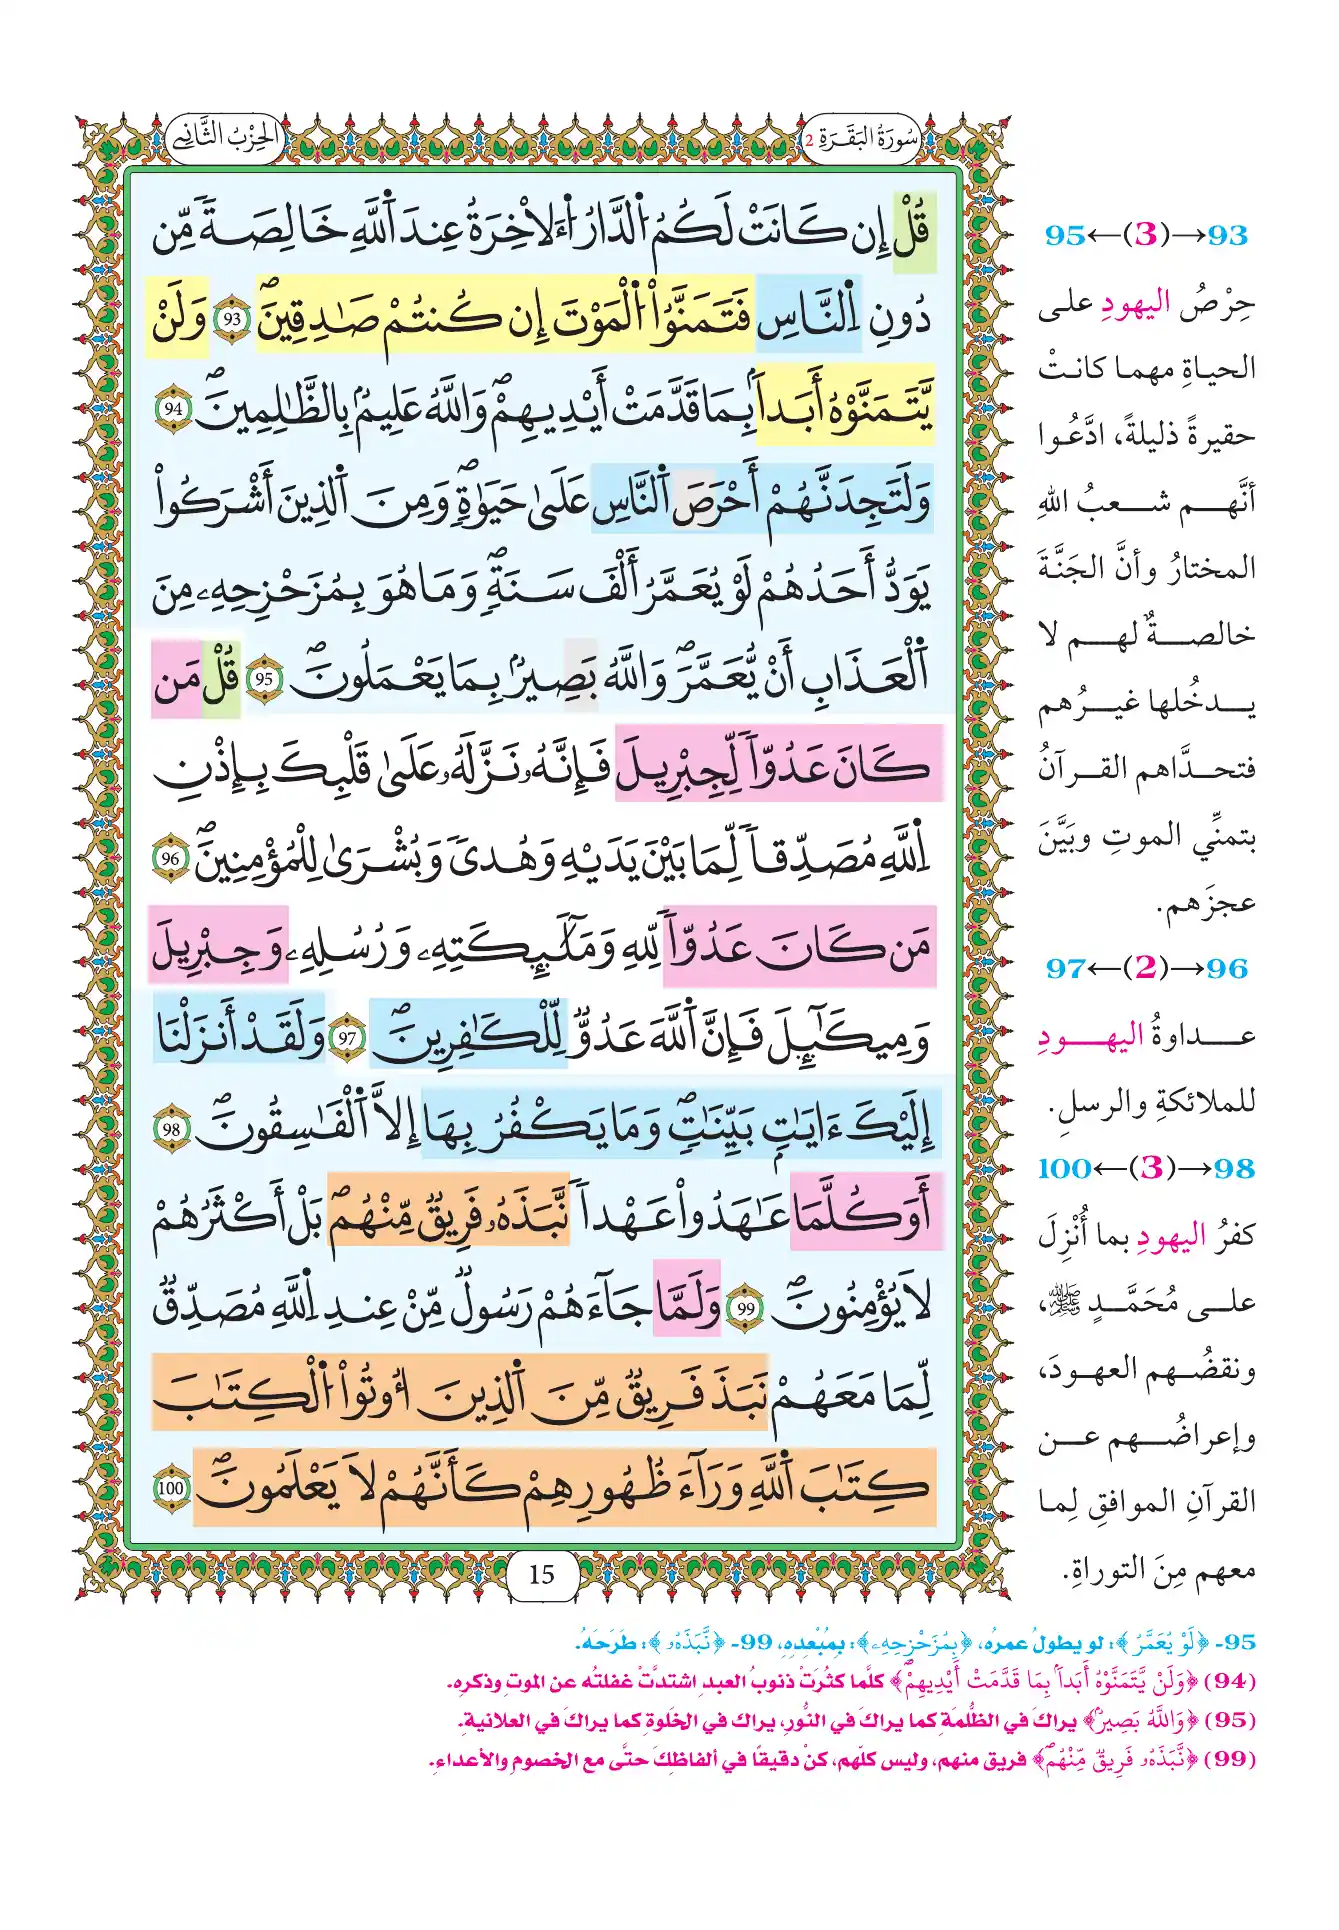 سُورَةُ البَقَرَةِ 2
الحِزْبُ الثَّانِي
قُلْ إِن كَانَتْ لَكُمُ اُ۬لدَّارُ اُ۬لَاخِرَةُ عِندَ اَ۬للَّهِ خَالِصَةٗ مِّن
دُونِ اِ۬لنَّاسِ فَتَمَنَّوُاْ اُ۬لْمَوْتَ إِن كُنتُمْ صَٰدِقِينَۖ 93 وَلَنْ
يَّتَمَنَّوْهُ أَبَداَۢ بِمَا قَدَّمَتْ أَيْدِيهِمْۖ وَاللَّهُ عَلِيمُۢ بِالظَّٰلِمِينَۖ 94
وَلَتَجِدَنَّهُمْ أَحْرَصَ اَ۬لنَّاسِ عَلَىٰ حَيَوٰةٖۖ وَمِنَ اَ۬لذِينَ أَشْرَكُواْ
يَوَدُّ أَحَدُهُمْ لَوْ يُعَمَّرُ أَلْفَ سَنَةٖۖ وَمَا هُوَ بِمُزَحْزِحِهِۦ مِنَ
اَ۬لْعَذَابِ أَنْ يُّعَمَّرَۖ وَاللَّهُ بَصِيرُۢ بِمَا يَعْمَلُونَۖ 95 قُلْ مَن
كَانَ عَدُوّاٗ لِّجِبْرِيلَ فَإِنَّهُۥ نَزَّلَهُۥ عَلَىٰ قَلْبِكَ بِإِذْنِ
اِ۬للَّهِ مُصَدِّقاٗ لِّمَا بَيْنَ يَدَيْهِ وَهُدىٗ وَبُشْرَىٰ لِلْمُؤْمِنِينَۖ 96
مَن كَانَ عَدُوّاٗ لِّلهِ وَمَلَٰٓئِكَتِهِۦ وَرُسُلِهِۦ وَجِبْرِيلَ
وَمِيكَٰٓئِلَ فَإِنَّ اَ۬للَّهَ عَدُوّٞ لِّلْكَٰفِرِينَۖ 97 وَلَقَدْ أَنزَلْنَا
إِلَيْكَ ءَايَٰتِۢ بَيِّنَٰتٖۖ وَمَا يَكْفُرُ بِهَا إِلَّا اَ۬لْفَٰسِقُونَۖ 98
أَوَكُلَّمَا عَٰهَدُواْ عَهْداٗ نَّبَذَهُۥ فَرِيقٞ مِّنْهُمۖ بَلْ أَكْثَرُهُمْ
لَا يُؤْمِنُونَۖ 99 وَلَمَّا جَآءَهُمْ رَسُولٞ مِّنْ عِندِ اِ۬للَّهِ مُصَدِّقٞ
لِّمَا مَعَهُمْ نَبَذَ فَرِيقٞ مِّنَ اَ۬لذِينَ أُوتُواْ اُ۬لْكِتَٰبَ
كِتَٰبَ اَ۬للَّهِ وَرَآءَ ظُهُورِهِمْ كَأَنَّهُمْ لَا يَعْلَمُونَۖ 100
15
93→(3)←95
حِرْصُ اليهودِ على
الحياةِ مهما كانتْ
حقيرةً ذليلةً، ادَّعُوا
أنَّهم شعبُ اللهِ
المختارُ وأنَّ الجَنَّةَ
خالصةٌ لهم لا
يدخُلها غيرُهم
فتحدَّاهم القرآنُ
بتمنِّي الموتِ وبَيَّنَ
عجزَهم.
96→(2)←97
عداوةُ اليهودِ
للملائكةِ والرسلِ.
98→(3)←100
كفرُ اليهودِ بما أُنْزِلَ
على مُحَمَّدٍ ﷺ،
ونقضُهم العهودَ،
وإعراضُهم عن
القرآنِ الموافقِ لِما
معهم مِنَ التوراةِ.
95- ﴿لَوْ يُعَمَّرُ﴾: لو يطولُ عمرُه، ﴿بِمُزَحْزِحِهِۦ﴾: بِمُبْعِدِهِ، 99- ﴿نَّبَذَهُۥ﴾: طَرَحَهُ.
(94) ﴿وَلَنْ يَّتَمَنَّوْهُ أَبَداَۢ بِمَا قَدَّمَتْ أَيْدِيهِمْۖ﴾ كلَّما كثُرَتْ ذنوبُ العبدِ اشتدَّتْ غفلتُه عن الموتِ وذكرِه.
(95) ﴿وَاللَّهُ بَصِيرُۢ﴾ يراكَ في الظُّلمَةِ كما يراكَ في النُّورِ، يراك في الخَلوة كما يراكَ في العلانيةِ.
(99) ﴿نَّبَذَهُۥ فَرِيقٞ مِّنْهُمۖ﴾ فريق منهم، وليس كلّهم، كنْ دقيقًا في ألفاظِكَ حتَّى مع الخصومِ والأعداءِ.